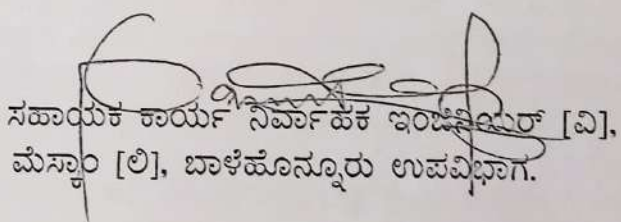 ಸಹಾಯಕ ಕಾರ್ಯ ನಿರ್ವಾಹಕ ಇಂಜಿನಿಯರ್ [ವಿ],
ಮೆಸ್ಕಾಂ [ಲಿ], ಬಾಳೆಹೊನ್ನೂರು ಉಪವಿಭಾಗ.